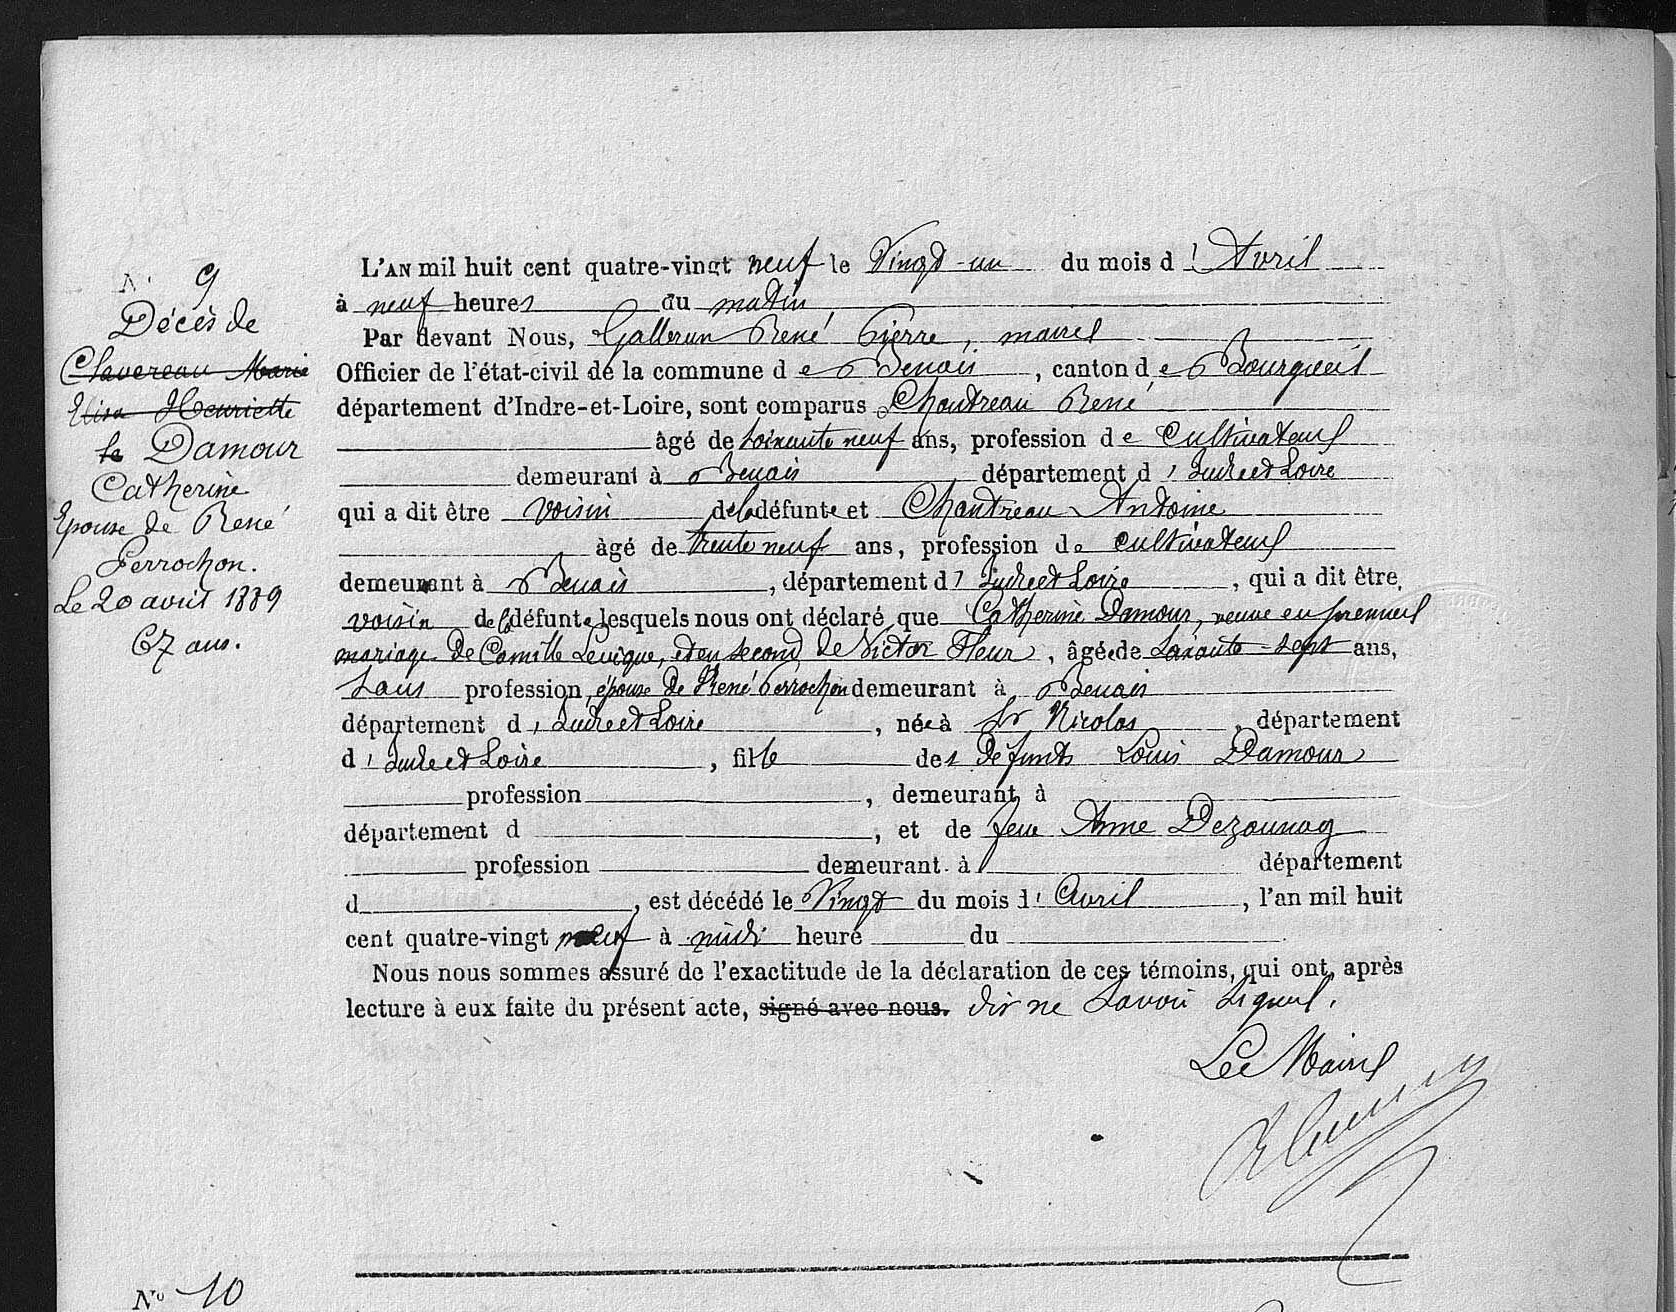 N° 9
Décès de
Clavereau Marie
Elisa Henriette
le Damour
Catherine
Epouse de René
Perrochon.
Le 20 avril 1889
67 ans.
L'AN mil huit cent quatre-vingt neuf le Vingt-un du mois d' Avril
à neuf heures du matin,
Par devant Nous, Gallerun René Pierre, maire
Officier de l'état-civil de la commune de Benais, canton de Bourgueil
département d'Indre-et-Loire, sont comparus Chautreau René
âgé de soixante neuf ans, profession de Cultivateur
demeurant à Benais département d'Indre et Loire
qui a dit être voisin de la défunte et Chautreau Antoine
âgé de trente neuf ans, profession de cultivateur
demeurant à Benais, département d'Indre et Loire, qui a dit être
voisin de la défunte, lesquels nous ont déclaré que Catherine Damour, veuve en premier
mariage de Camille Levêque, et en second de Victor Fleur, âgée de Soixante-sept ans,
Sans profession, épouse de René Perrochon demeurant à Benais
département d'Indre et Loire, née à St Nicolas, département
d'Indre et Loire, fille des défunts Louis Damour
profession, demeurant à
département d, et de feue Anne
profession demeurant à département
d, est décédé le Vingt du mois d'Avril, l'an mil huit
cent quatre-vingt neuf à midi heure du
Nous nous sommes assuré de l'exactitude de la déclaration de ces témoins, qui ont, après
lecture à eux faite du présent acte, signé avec nous. dit ne Savoir Signer.
Le Maire
N° 10